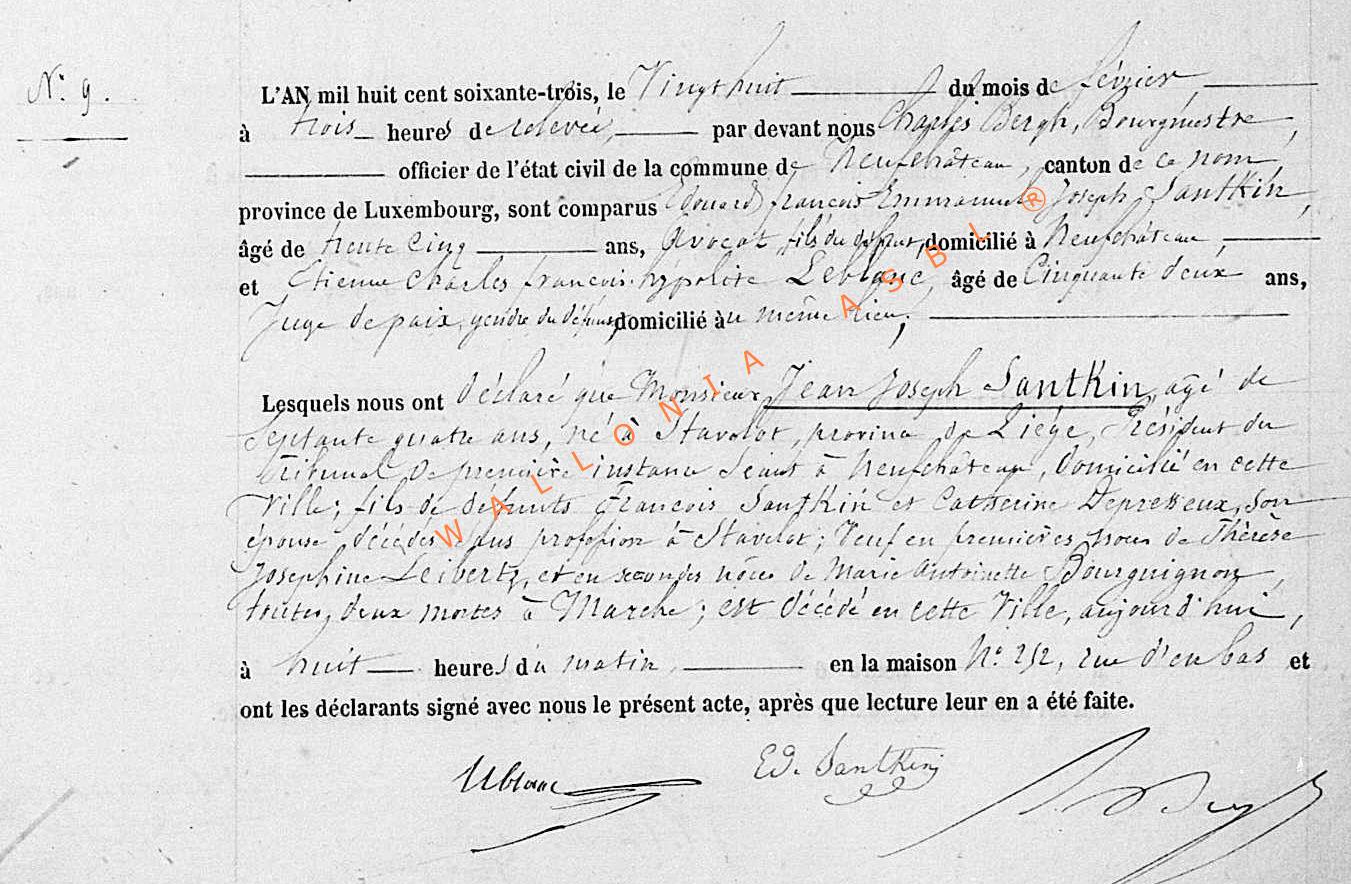 N° 9.
L'AN mil huit cent soixante-trois, le Vingt huit du mois de février,
à trois heures de relevée, par devant nous Charles Bergh, Bourgmestre,
officier de l'état civil de la commune de Neufchâteau, canton de ce nom,
province de Luxembourg, sont comparus Edouard françois Emmanuel Joseph Santkin,
âgé de trente cinq ans, Avocat fils du défunt, domicilié à Neufchâteau,
et Etienne Charles françois hypolite Leblanc, âgé de Cinquante deux ans,
Juge de paix, gendre du défunt, domicilié au même lieu;
Lesquels nous ont déclaré que Monsieur Jean Joseph Santkin, agé de
Septante quatre ans, né à Stavelot, province de Liége, Président du
Tribunal de première instance séant à Neufchâteau, domicilié en cette
Ville; fils de défunts François Santkin et Catherine Depresseux, son
épouse décédés sans profession à Stavelot; Veuf en premières noces de Thérèse
Josephine Leibertz, et en secondes nôces de Marie Antoinette Bourguignon,
toutes deux mortes à Marche; est décédé en cette Ville, aujourd'hui,
à huit heures du matin, en la maison N° 252, rue d'en bas et
ont les déclarants signé avec nous le présent acte, après que lecture leur en a été faite.
Leblanc Ed. Santkin
WALLONIA ASBL ®